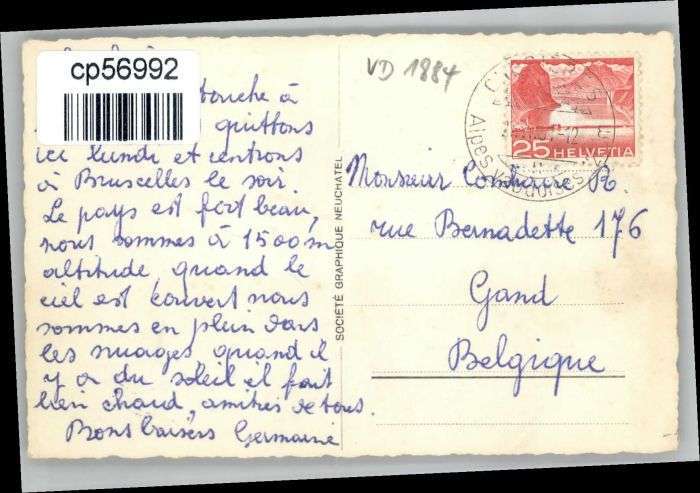 cp56992
VD 1884
touche à
quittons
ici lundi et rentrons
à Bruxelles le soir.
Le pays est fort beau,
nous sommes à 1500 m
altitude, quand le
ciel est couvert nous
sommes en plein dans
les nuages, quand il
y a du soleil il fait
bien chaud, amitiés de tous.
Bons baisers Germaine
SOCIÉTÉ GRAPHIQUE NEUCHATEL
25 HELVETIA
Alpes vaudoises
Monsieur R.
rue Bernadette 176
Gand
Belgique